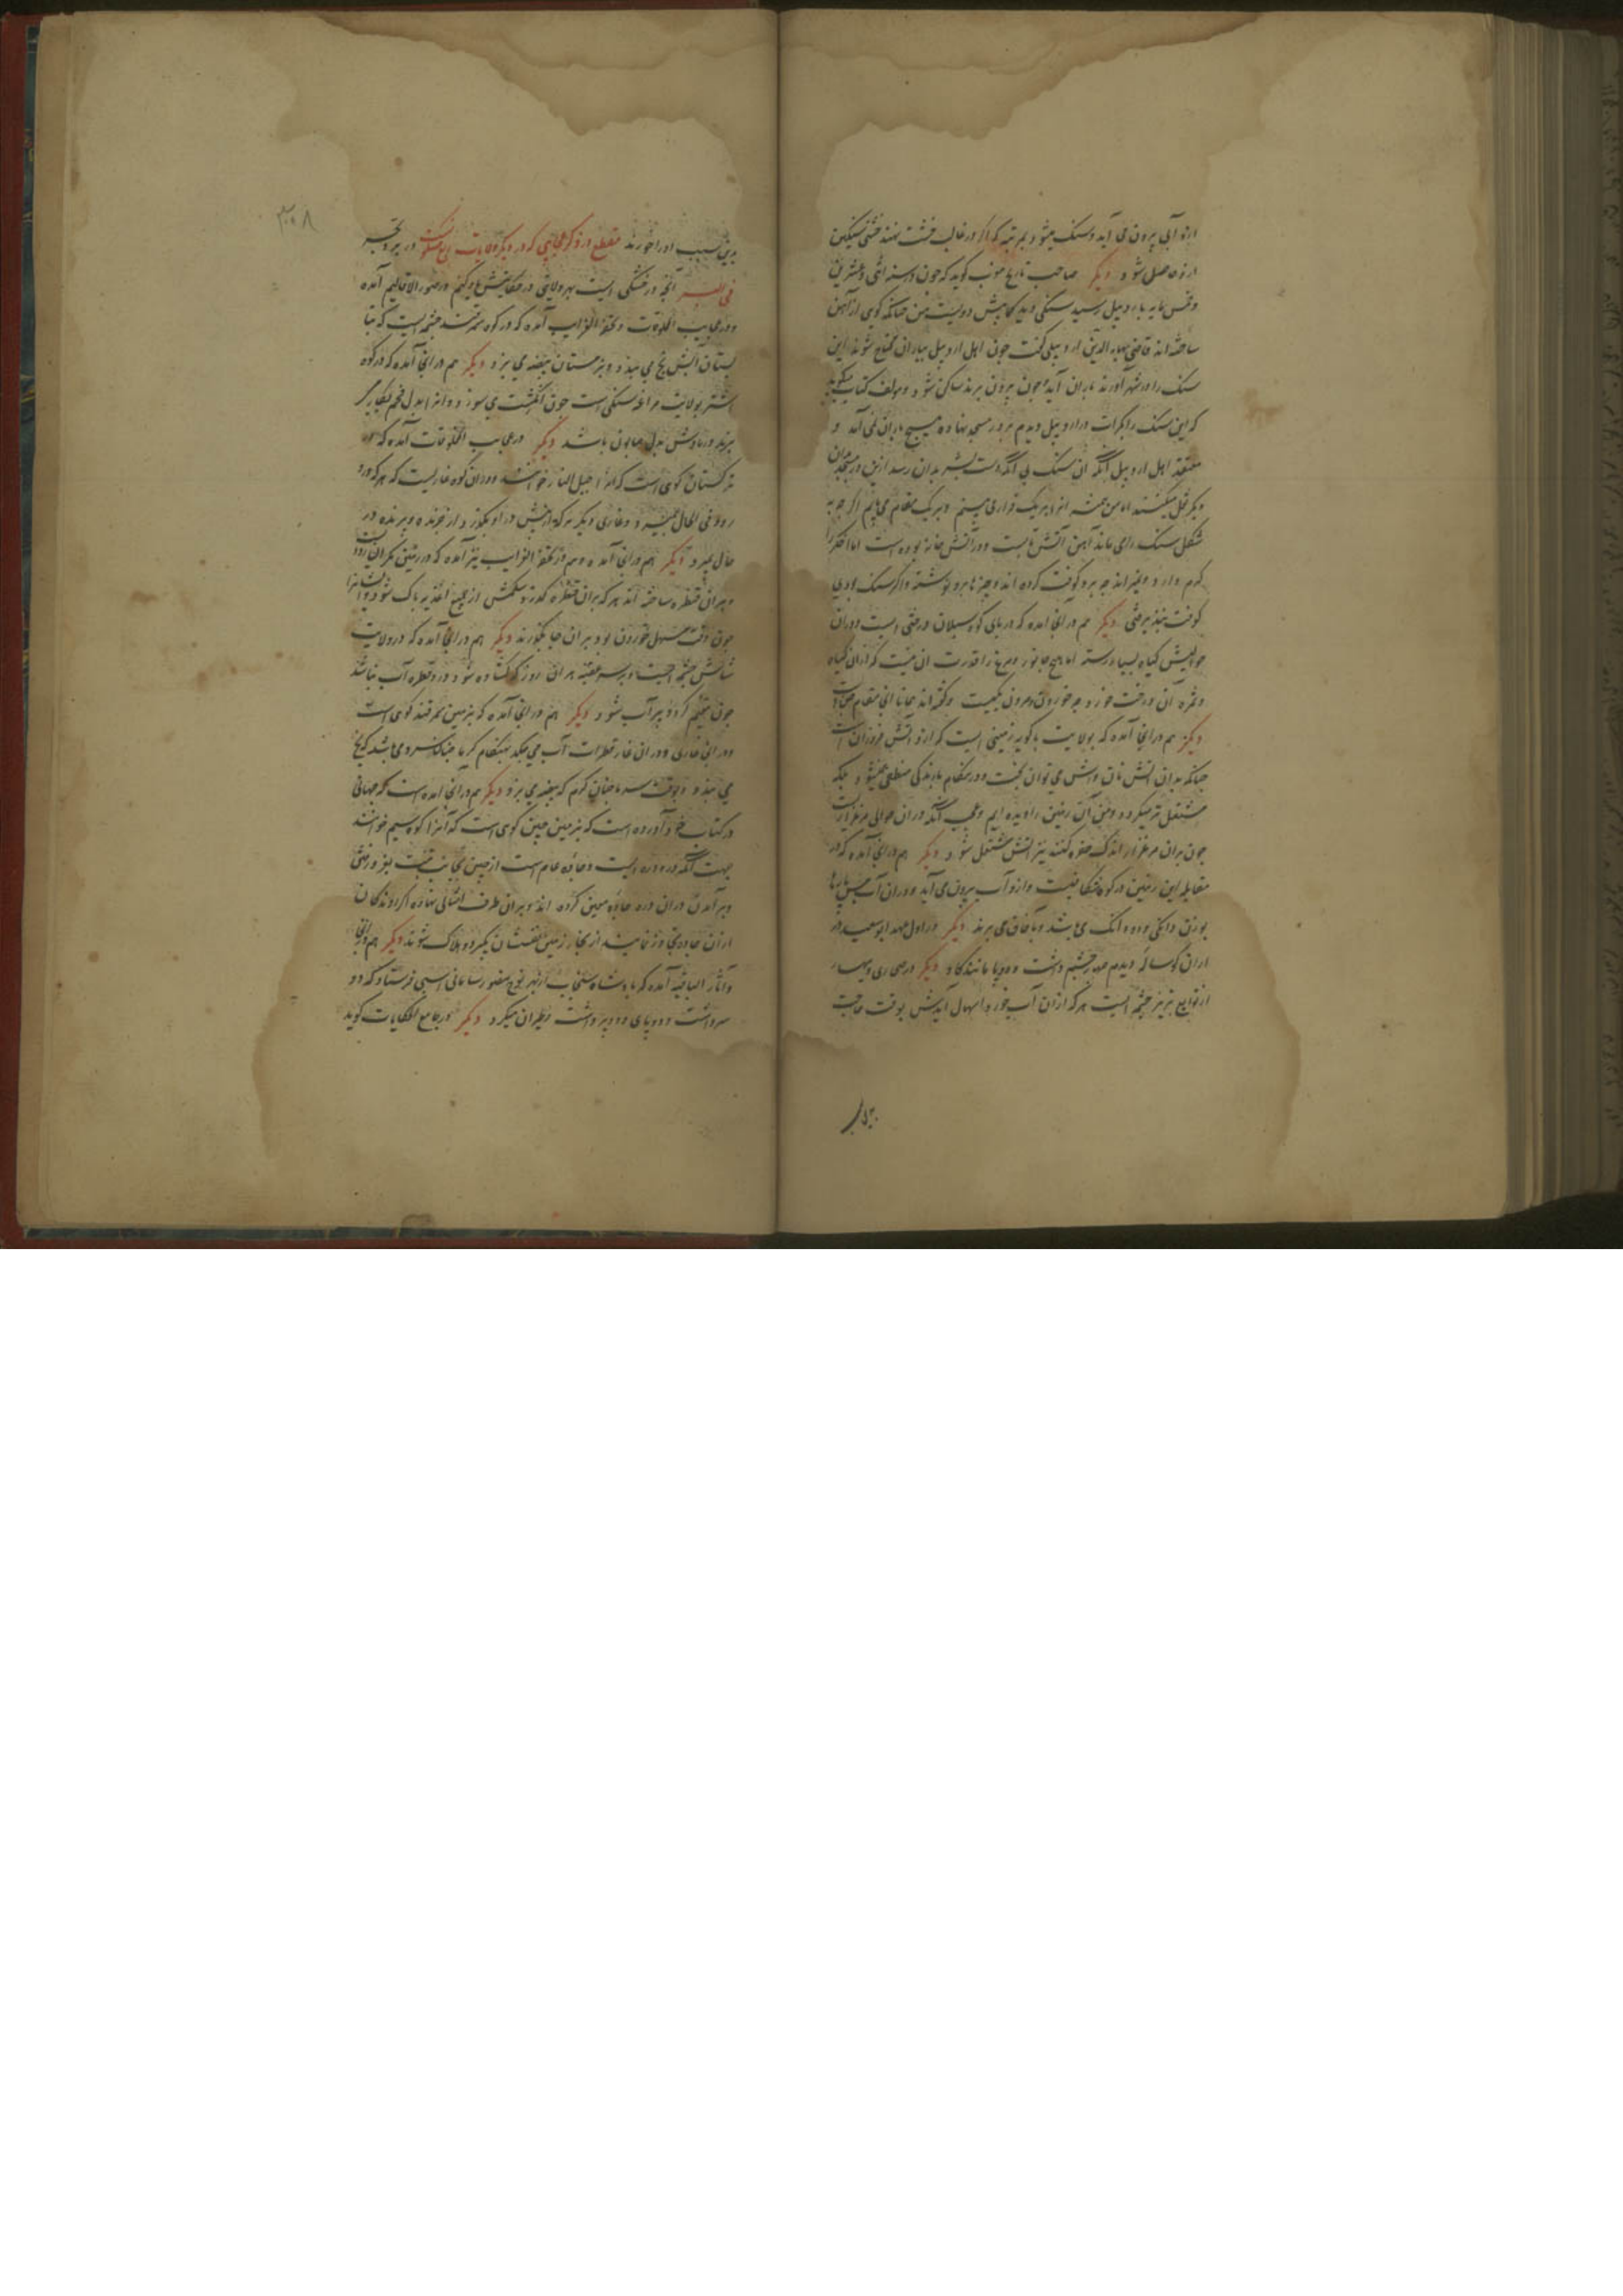 ازو آبی بیرون می آید و سنک میشود بمرتبه که اکر در قالب خشت نهند خشتی سنکین
ازو حاصل شود دیکر صاحب تاریخ مغرب کوید که جون در سنه اثنی و عشرین
و خمس مایه باردبیل رسید سنکی دید کمابیش دویست من جنانکه کویی از آهن
ساخته اند قاضی بهاء الدین اردبیلی کفت جون اهل اردبیل بباران محتاج شوند این
سنک را در شهر آورند باران آید و جون بیرون برند ساکن شود و مولف کتاب میکوید
که این سنک را بکرات در اردبیل دیدم بر در مسجد نهاده و هیج باران نمی آمد و
معتقد اهل اردبیل آنکه آن سنک بی آنکه دست بشر بدان رسد ازین در مسجد بدان
دیکر نقل میکند اما من همیشه او را بر یک قرار می بینم و بر یک مقام می یابم اکر جه به
شکل سنک رای ماند آهن آتش تابست و در آتش خانه بوده است اما
کرم دارد و بر و کوفت کرده اند و جیزها برو نوشته و اکر سنک بودی
کوفت نبذیرفتی دیکر هم در آنجا آمده که در پای کوه سبلان درختی است و در آن
حوالیش کیاه بسیار رسته اما هیج جانور و مرغ را قدرت آن نیست که از آن کیاه
و ثمره آن درخت خورد جه خوردن و مردن یکیست و کفته اند همانا آن مقام جنیانست
دیکر هم در آنجا آمده که بولایت باکویه زمینی است که ازو آتش فروزان است
جنانکه بدان آتش نان و آش می توان پخت و در هنکام بارندکی منطفی نمیشود بلکه
مشتعل تر میکردد و من آن زمین را دیده ایم و عجب آنکه در آن حوالی مرغزاریست
جون در آن مرغزار اندک حفره کنند نیز آتش مشتعل شود دیکر هم در آنجا آمده که در
مقابله این زمین در کوه شکافیست و ازو آب بیرون می آید و در آن آب مس پارها
بوزن دانکی و دو دانک می باشد و بآفاق می برند دیکر در اول عهد ابو سعید در
اران کوساله دیدم جهار جشم داشت و دو پا مانند کاو دیکر در صحاری و
از توابع تبریز جشمه ایست هر که از آن آب خورد اسهال آیدش بوقت حاجت
بدین
۳۰۸
بدین سبب او را خورند مقطع در ذکر عجایبی که در دیکر ولایات ربع مسکونست در بر و بحر
فی البر آنجه در خشکی است بهر ولایتی در صور الاقالیم آمده
و در عجایب المخلوقات و تحفة الغرایب آمده که در کوه سمرقند جشمه ایست که بتا
بستان آبش یخ می بندد و بزمستان بیضه می پزد دیکر هم در آنجا آمده که در کوه
اشتر بولایت مراغه سنکی است جون انکشت می سوزد و او را بدل فحم بکار
برند و رمادش بدل صابون باشد دیکر در عجایب المخلوقات آمده که در
ترکستان کوهی است که آنرا جبل النار خوانند و در آن کوه غاریست که هر که درو
رود فی الحال بمیرد و غاری دیکر هر که از پیش در او بکذرد از خزنده و پرنده در
حال بمیرد دیکر هم در آنجا آمده و هم در تحفة الغرایب نیز آمده که در زمین مکران رودیست
و بر آن قنطره ساخته اند هر که بر آن قنطره کذرد شکمش از جمیع اغذیه پاک شود و ایشانرا
جون وقت مسهل خوردن بود بر آن جا بکذرند دیکر هم در آنجا آمده که در ولایت
شاش جشمه ایست و بر سر عقبه هر آن روز که کشاده شود درو قطره آب نباشد
جون میغ کردد پر آب شود دیکر هم در آنجا آمده که بزمین سمرقند کوهی است
و در آن غاری و در آن غار قطرات آب می جکد بهنکام کرما جنان سرد می باشد که یخ
می بندد و بوقت سرما جنان کرم که بیضه می پزد دیکر هم در آنجا آمده است که جیهانی
در کتاب خود آورده است که بزمین جین کوهی است که آنرا کوه سیم خوانند
بجهت آنکه درو دره ایست و جاده عام است از جین بجانب تبت بفرو رفتن
و بر آمدن در آن دره جاده معین کرده اند و بر آن طرف امثالی نهاده اکر روندکان
از آن جاده تجاوز نمایند از بخار زمین نفسشان بکیرد و هلاک شوند دیکر هم در آنجا
و آثار الباقیه آمده که پادشاه سنجاب از بهر نوح منصور سامانی اسبی فرستاد که دو
سر داشت و دو پای و دو پر داشت و طیران میکرد دیکر در جامع الحکایات کوید